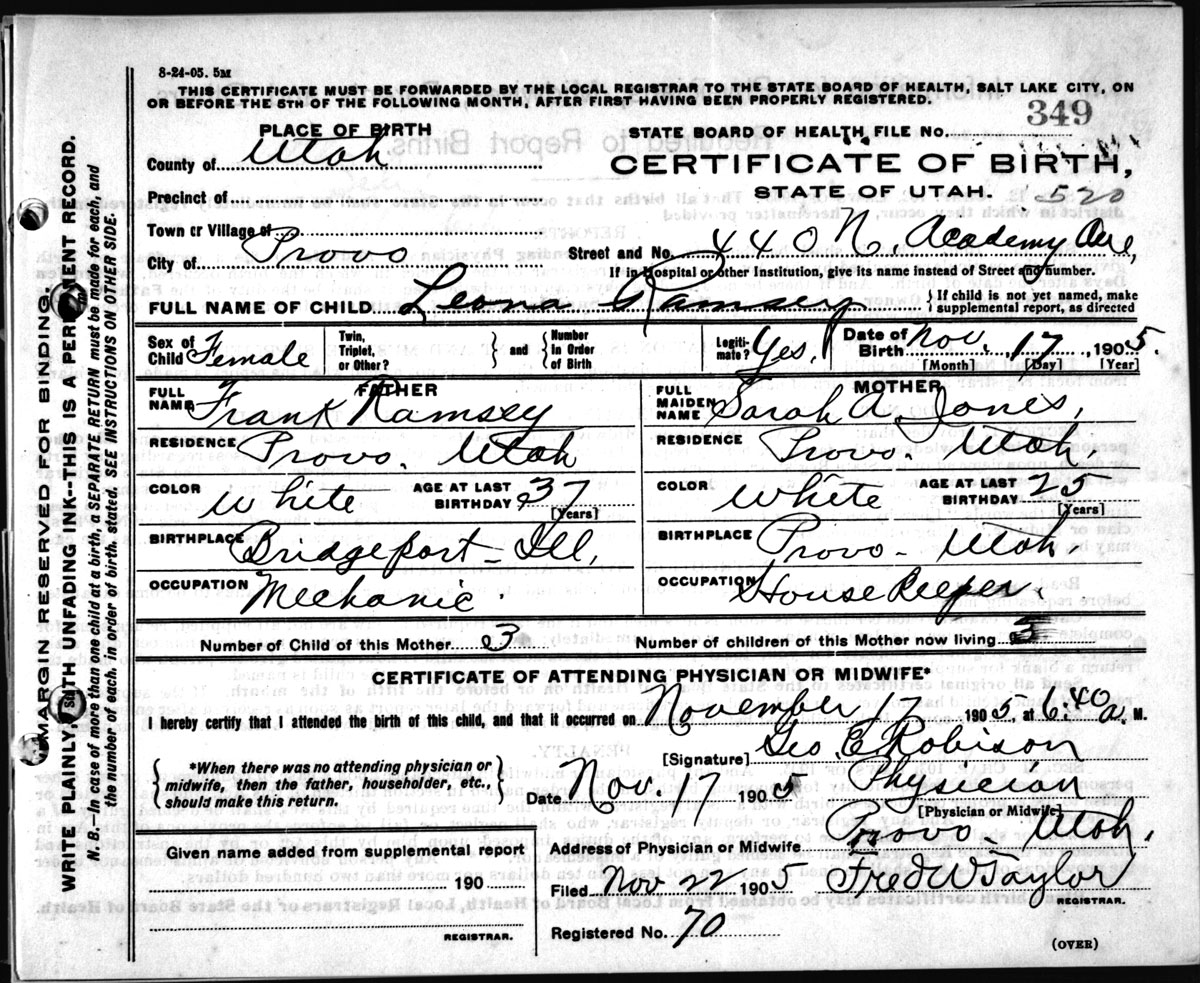 8-24-05. 5M
THIS CERTIFICATE MUST BE FORWARDED BY THE LOCAL REGISTRAR TO THE STATE BOARD OF HEALTH, SALT LAKE CITY, ON
OR BEFORE THE 5TH OF THE FOLLOWING MONTH, AFTER FIRST HAVING BEEN PROPERLY REGISTERED.
PLACE OF BIRTH
STATE BOARD OF HEALTH FILE No. 349
County of Utah
CERTIFICATE OF BIRTH,
Precinct of
STATE OF UTAH. 520
Town or Village of
City of Provo
Street and No. 440 N. Academy Ave,
If in Hospital or other Institution, give its name instead of Street and number.
FULL NAME OF CHILD Leona Ramsey
{ If child is not yet named, make
supplemental report, as directed
Sex of Child Female
Twin, Triplet, or Other?
} and {
Number in Order of Birth
Legiti-mate? Yes.
Date of Birth Nov. 17, 1905.
[Month] [Day] [Year]
FATHER
FULL NAME Frank Ramsey
RESIDENCE Provo. Utah
COLOR White AGE AT LAST BIRTHDAY 37
[Years]
BIRTHPLACE Bridgeport - Ill,
OCCUPATION Mechanic
MOTHER
FULL MAIDEN NAME Sarah A. Jones,
RESIDENCE Provo. Utah
COLOR White AGE AT LAST BIRTHDAY 25
[Years]
BIRTHPLACE Provo - Utah.
OCCUPATION House Keeper.
Number of Child of this Mother 3
Number of children of this Mother now living 3
CERTIFICATE OF ATTENDING PHYSICIAN OR MIDWIFE*
I hereby certify that I attended the birth of this child, and that it occurred on November 17 1905, at 6:40 a. M.
[Signature] Geo. E. Robison
{ *When there was no attending physician or
midwife, then the father, householder, etc.,
should make this return. }
Date Nov. 17 1905 Physician
[Physician or Midwife]
Given name added from supplemental report
Address of Physician or Midwife Provo Utah.
190
Filed Nov 22 1905 Fred W Taylor
REGISTRAR.
Registered No. 70
REGISTRAR.
(OVER)
MARGIN RESERVED FOR BINDING.
WRITE PLAINLY, WITH UNFADING INK--THIS IS A PERMANENT RECORD.
N. B.--In case of more than one child at a birth, a SEPARATE RETURN must be made for each, and
the number of each, in order of birth, stated. SEE INSTRUCTIONS ON OTHER SIDE.